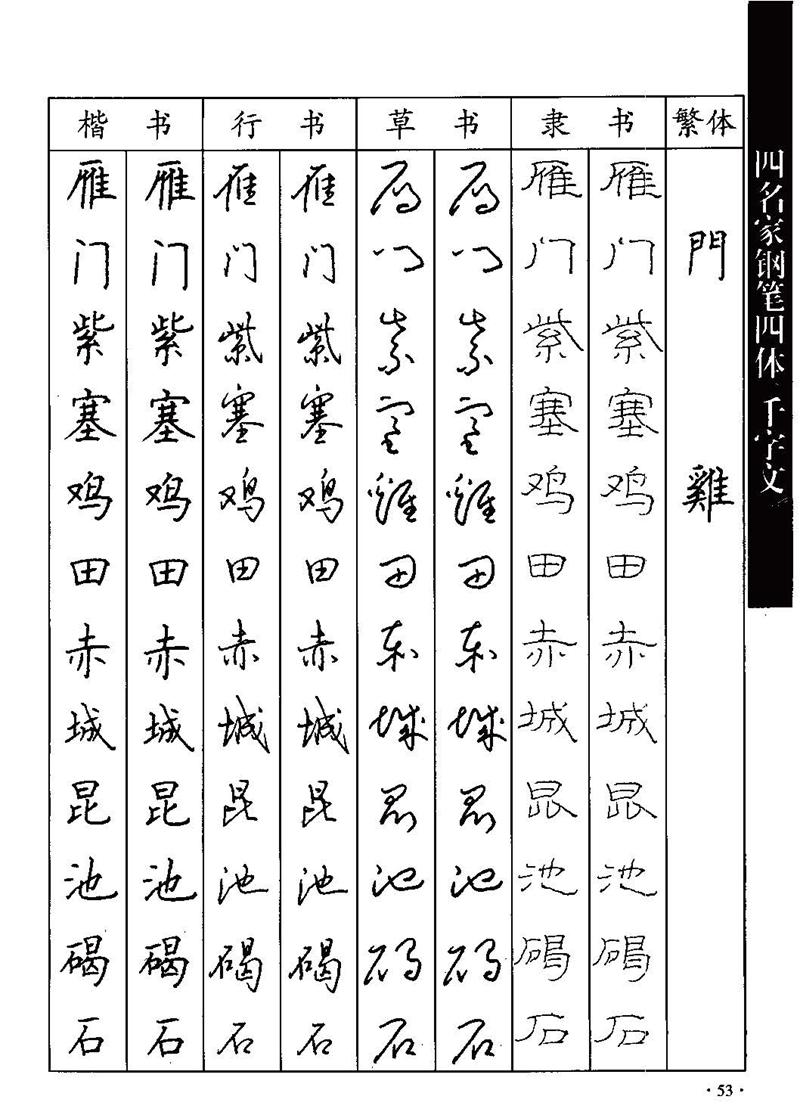 楷书 行书 草书 隶书 繁体
雁 雁 雁 雁 雁 雁 雁 雁
门 门 门 门 门 门 门 门 門
紫 紫 紫 紫 紫 紫 紫 紫
塞 塞 塞 塞 塞 塞 塞 塞
鸡 鸡 鸡 鸡 雞 雞 鸡 鸡 雞
田 田 田 田 田 田 田 田
赤 赤 赤 赤 赤 赤 赤 赤
城 城 城 城 城 城 城 城
昆 昆 昆 昆 昆 昆 昆 昆
池 池 池 池 池 池 池 池
碣 碣 碣 碣 碣 碣 碣 碣
石 石 石 石 石 石 石 石
四名家钢笔四体千字文
·53·